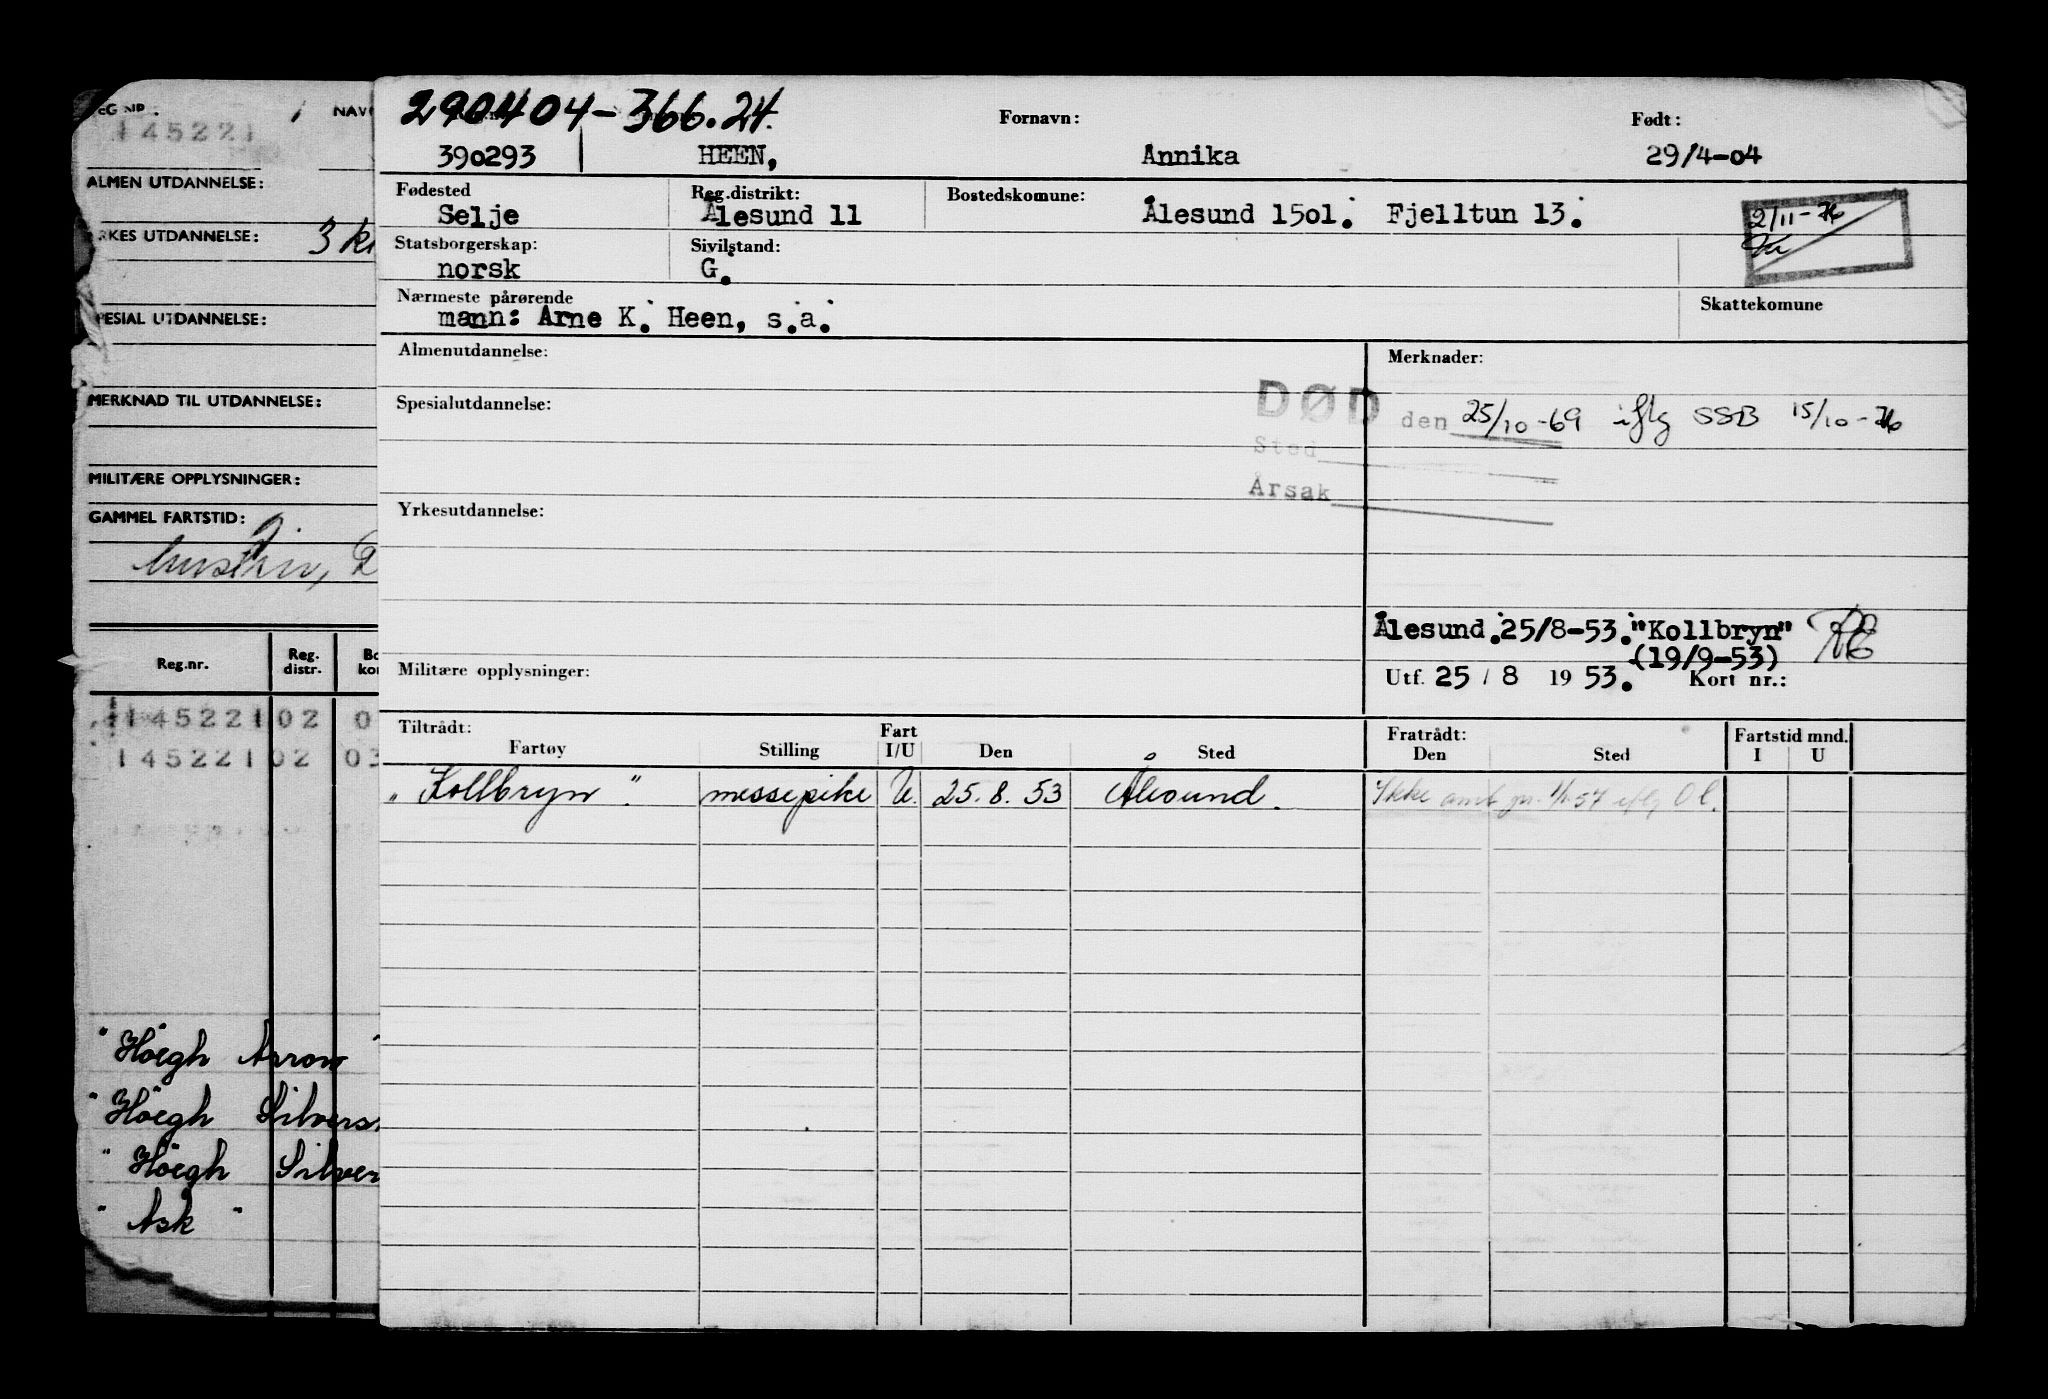 REG NR. NAV
145221
ALMEN UTDANNELSE:
YRKES UTDANNELSE: 3 kl
SPESIAL UTDANNELSE:
MERKNAD TIL UTDANNELSE:
MILITÆRE OPPLYSNINGER:
GAMMEL FARTSTID:
Reg.nr. Reg. distr. Bo kom
145221 02 0
145221 02 03
"Höegh Arrow"
"Höegh Silvers
"Höegh Silver
"Ask"
290404-366.24.
Fornavn: Født:
390293 HEEN, Annika 29/4-04
Fødested Reg.distrikt: Bostedskomune:
Selje Ålesund 11 Ålesund 1501. Fjelltun 13.
2/11-76
Statsborgerskap: Sivilstand:
norsk G.
Nærmeste pårørende Skattekomune
mann: Arne K. Heen, s.a.
Almenutdannelse: Merknader:
Spesialutdannelse:
DØD den 25/10-69 iflg SSB 15/10-76
Sted
Årsak
Yrkesutdannelse:
Ålesund.25/8-53."Kollbryn" RE
(19/9-53)
Militære opplysninger: Utf. 25 / 8 1953. Kort nr.:
Tiltrådt: Fart Fratrådt: Fartstid mnd.
Fartøy Stilling I/U Den Sted Den Sted I U
"Kollbryn". messepike U. 25.8.53 Ålesund. Ikke omb. pr. 1/1-57 iflg Ol.